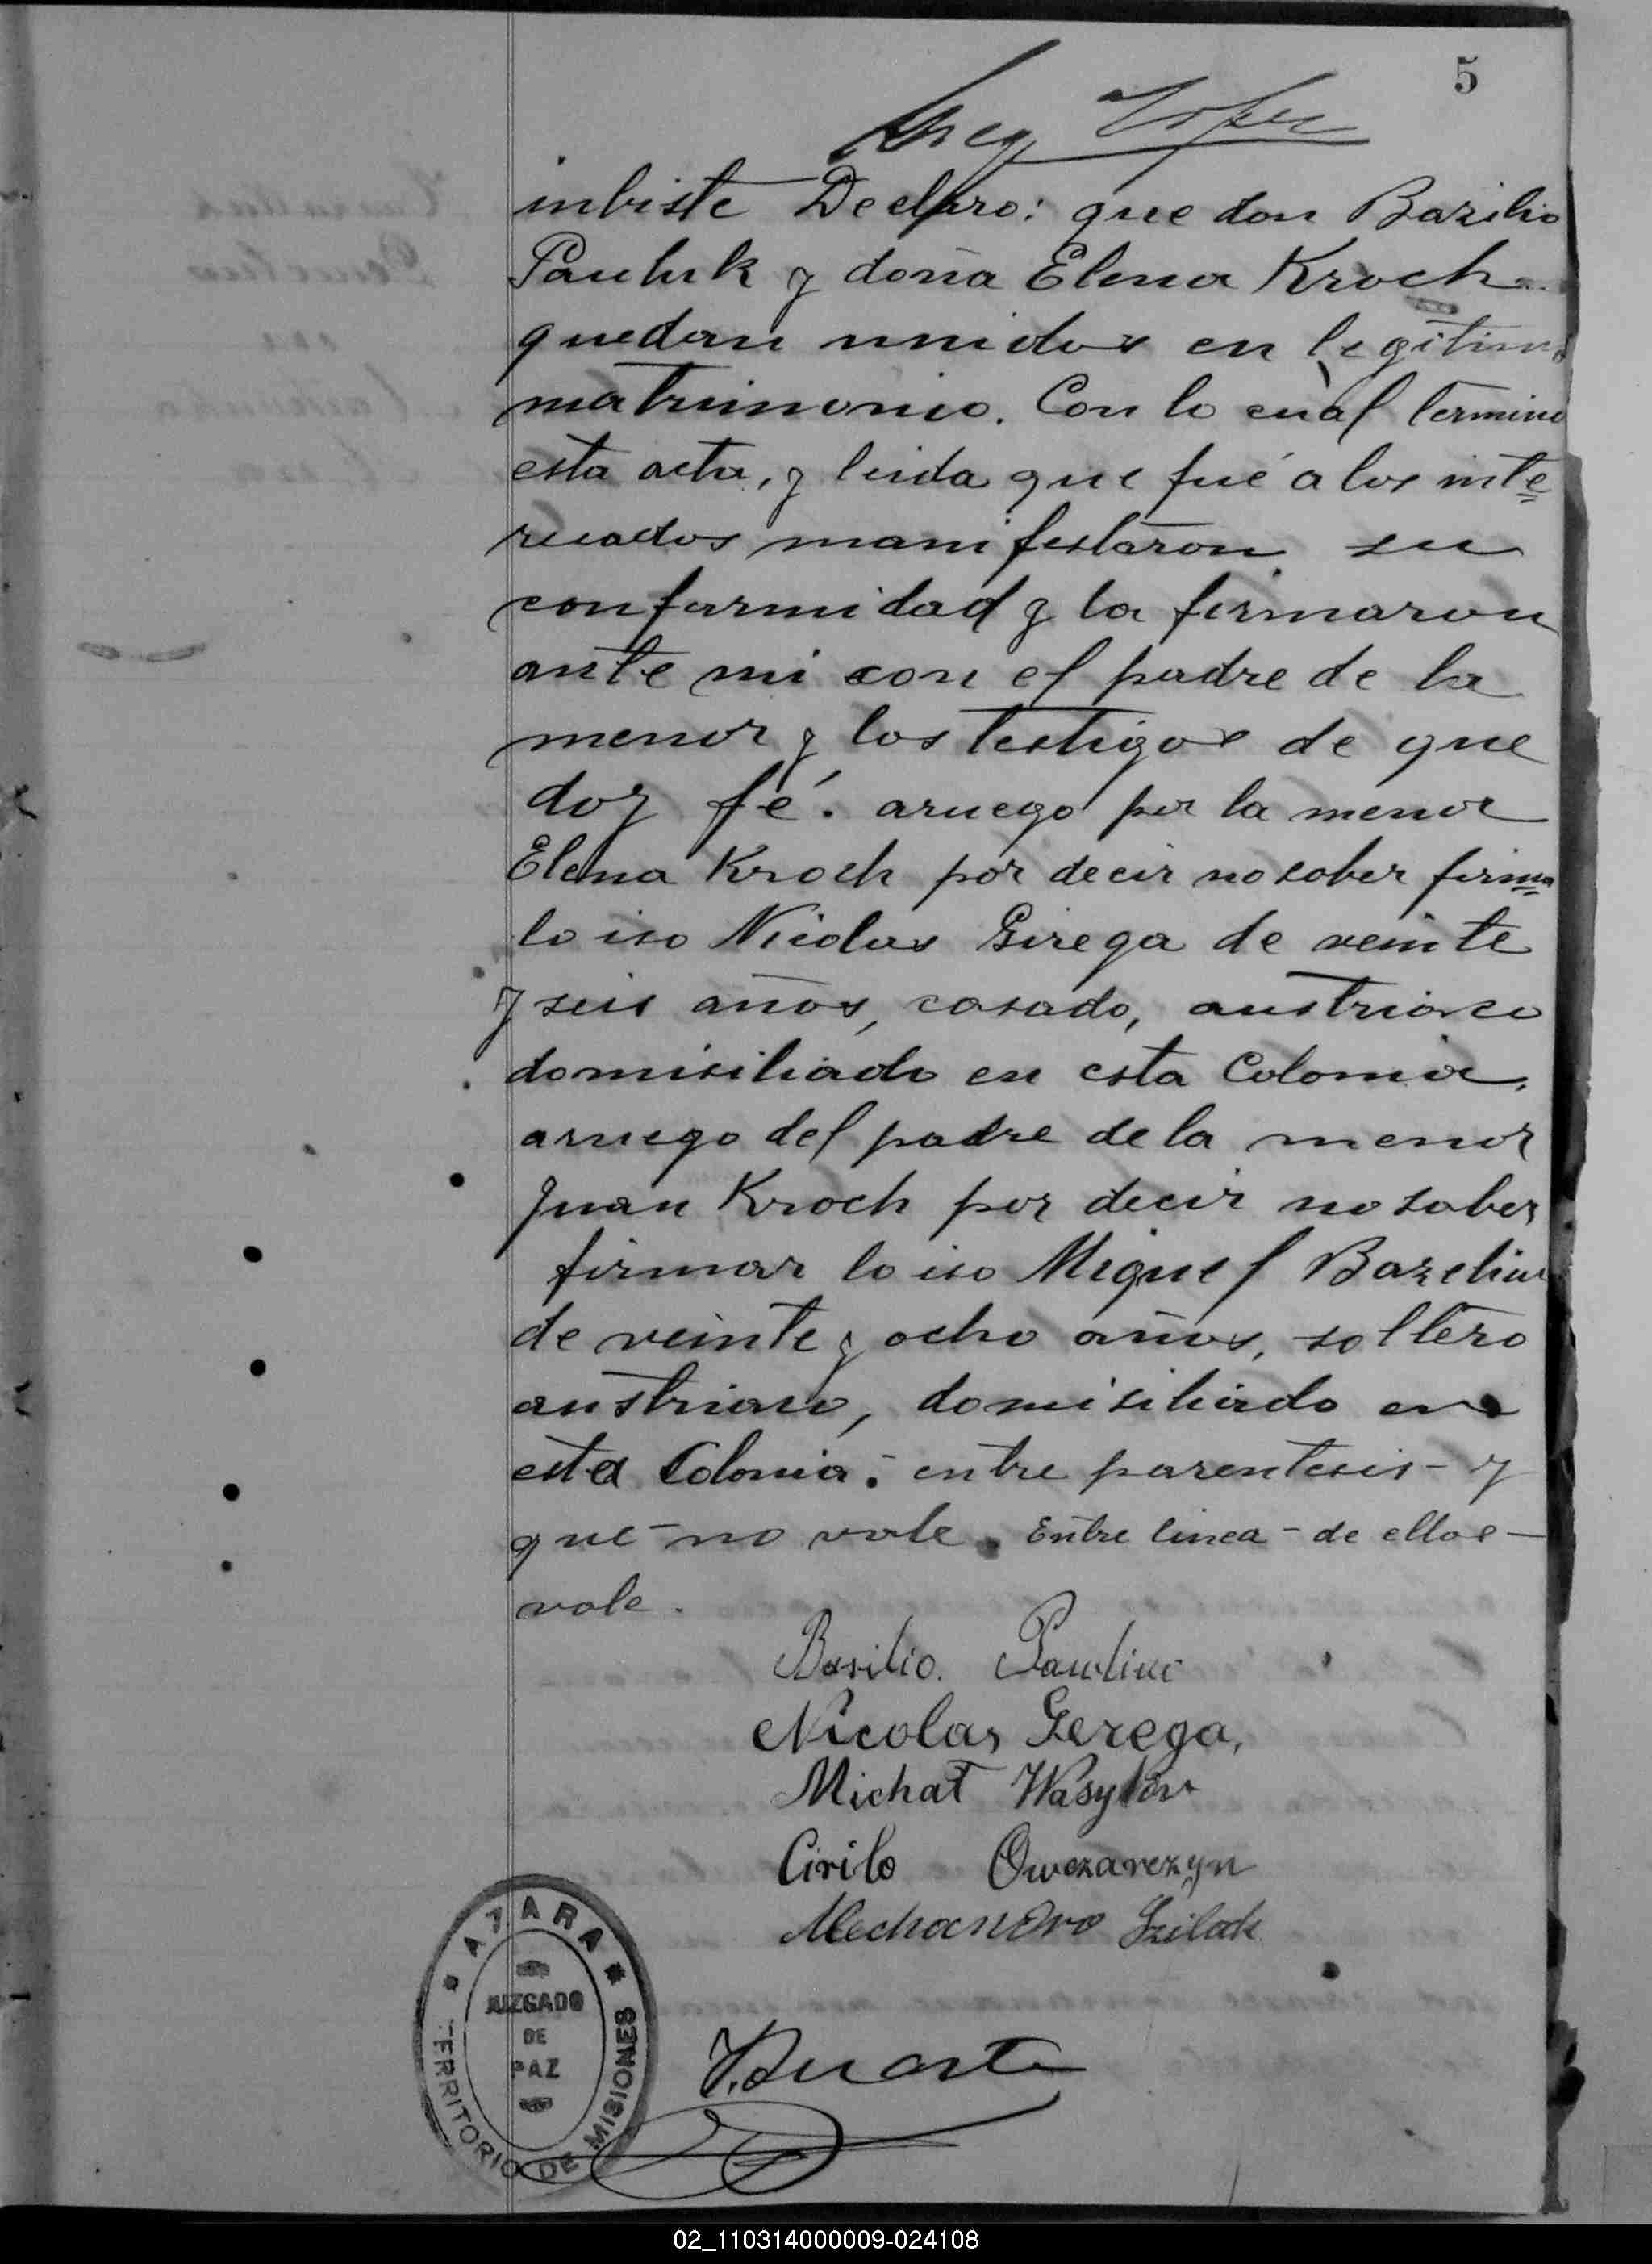 5
inbiste Declaro: que don Bazilio
Pauluk y doña Elena Kroch
quedan unidos en legitimo
matrimonio. Con lo cuàl termino
esta acta, y leida que fué a los inte
resados manifestaron su
conformidad y la firmaron
ante mi con el padre de la
menor y los testigos de que
doy fé. aruego por la menor
Elena Kroch por decir no saber firma
lo iso Nicolas Girega de veinte
y seis años, casado, austriaco
domisiliado en esta Colonia.
aruego del padre de la menor
Juan Kroch por decir no saber
firmar lo iso Miguel Bazeliu
de veinte y ocho años, soltero
austriaco, domisiliado en
esta Colonia: entre parentesis - y
que - no vale. Entre linea - de ellos -
vale.
Basilio. Pawliuc
Nicolas Gerega,
Michał Wasylów
Cirilo Owczarczyn
Szilak
V. Duarte
AZARA
JUZGADO
DE
PAZ
TERRITORIO DE MISIONES
02_110314000009-024108